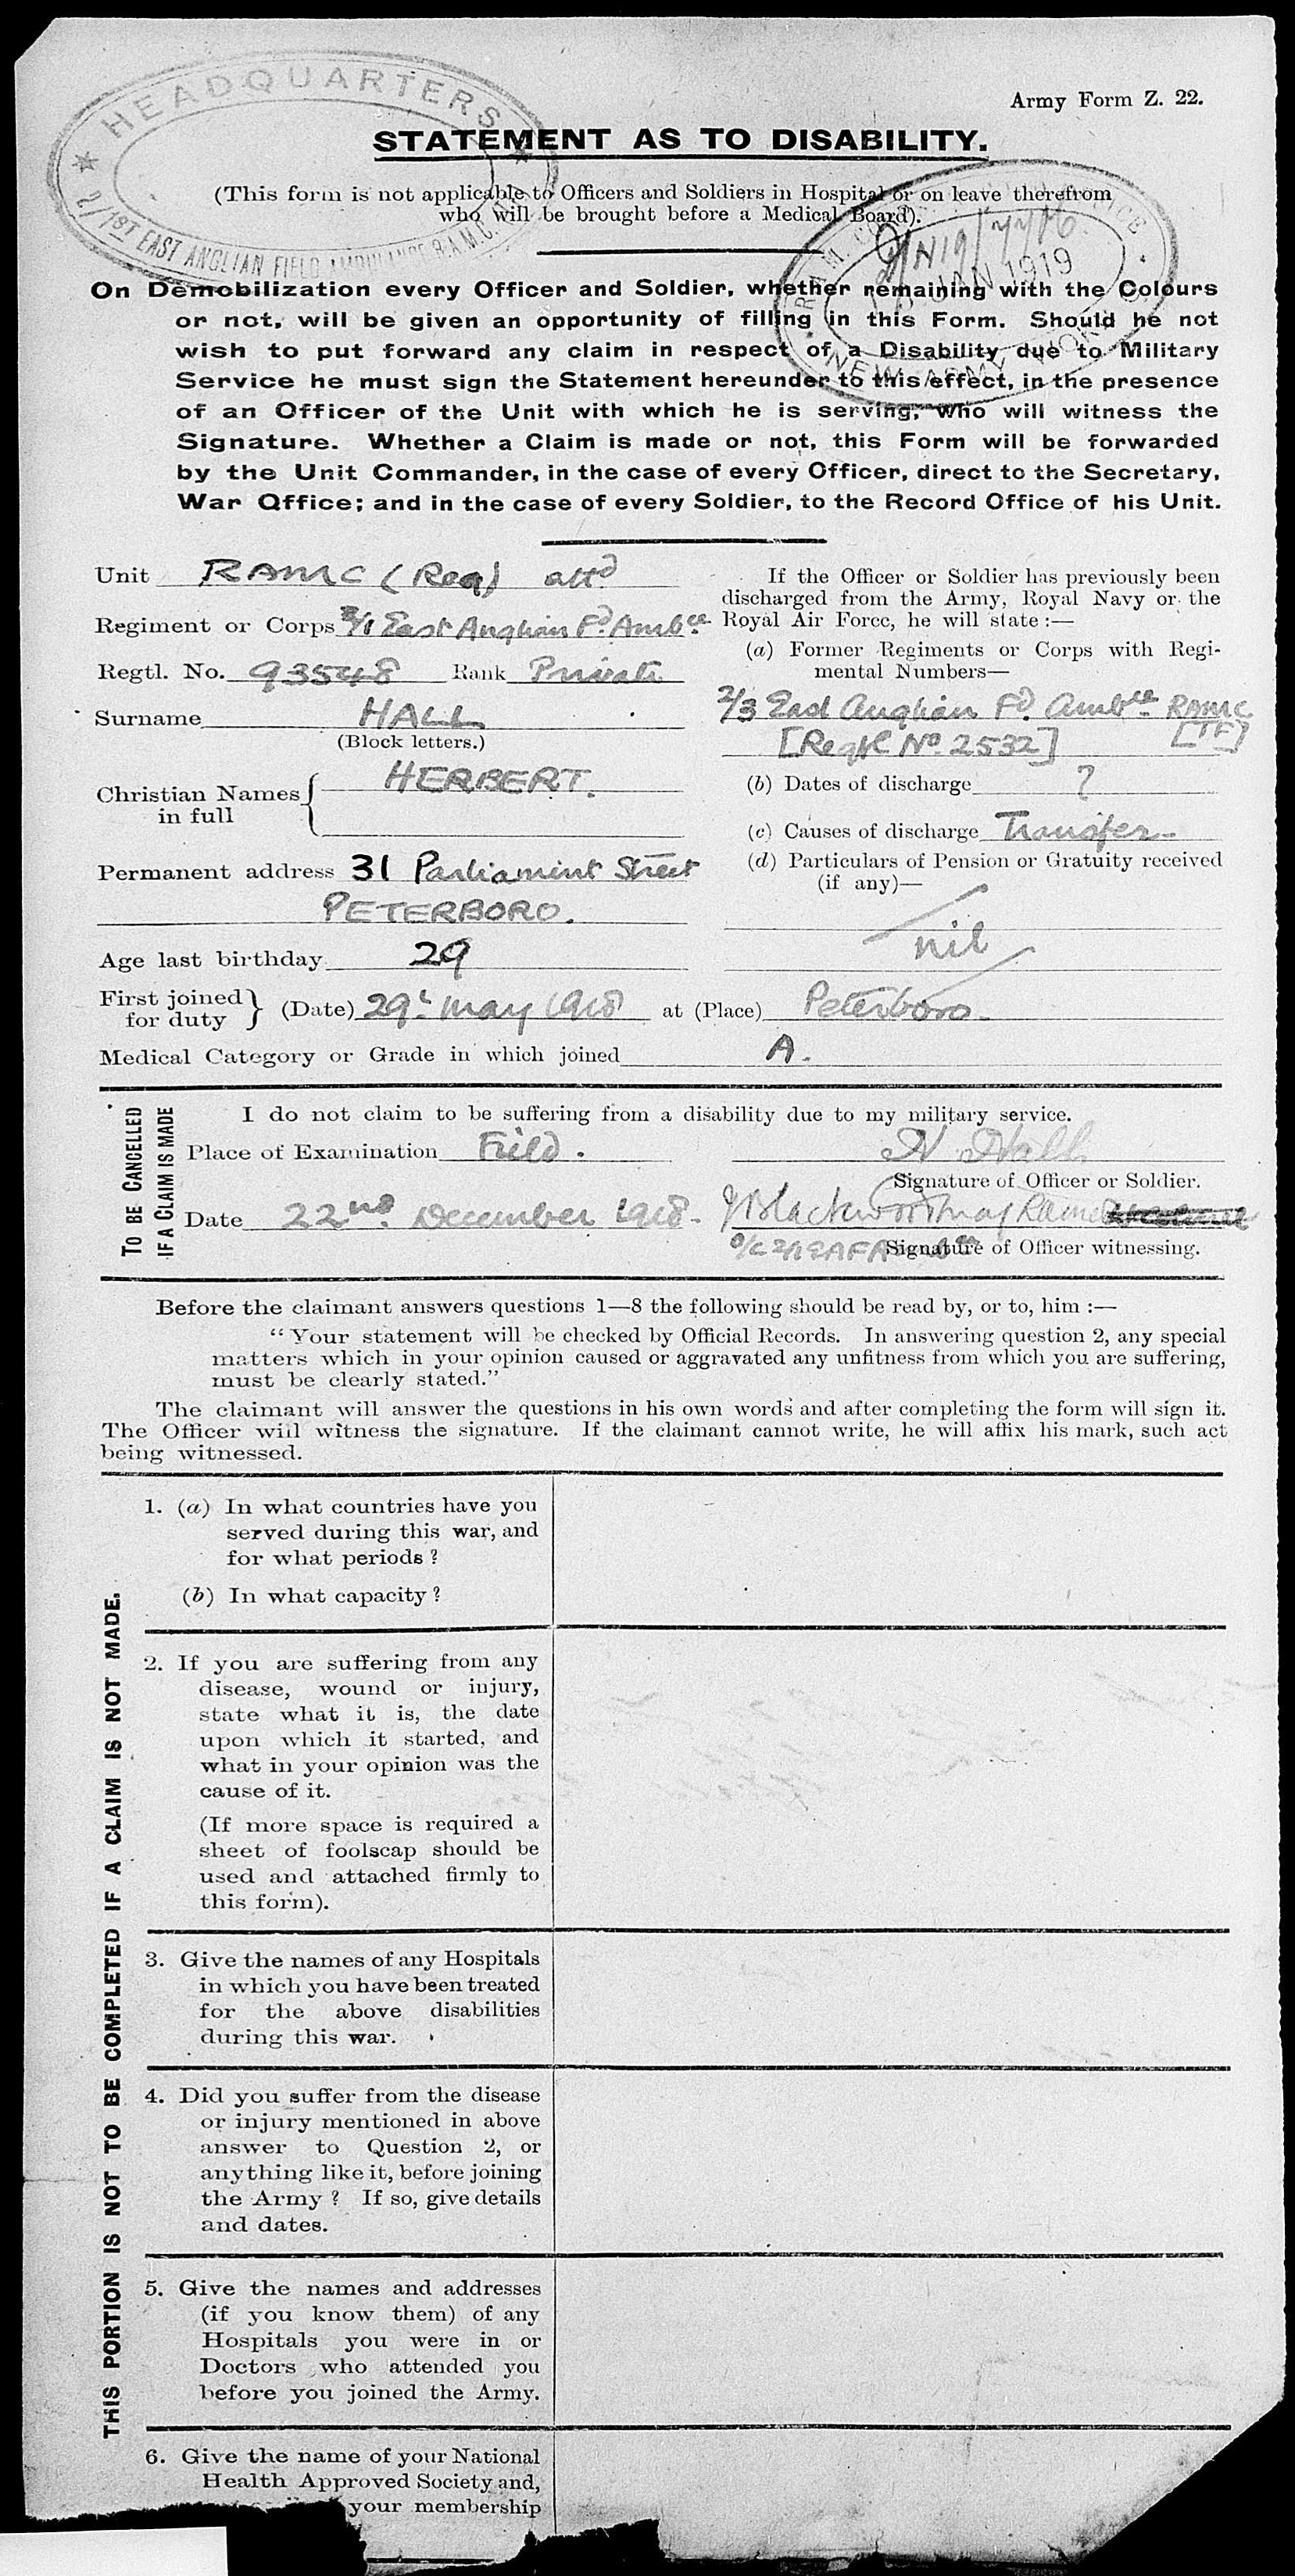 HEADQUARTERS
2/1ST EAST ANGLIAN FIELD AMBULANCE R.A.M.C.
Army Form Z. 22.
STATEMENT AS TO DISABILITY.
(This form is not applicable to Officers and Soldiers in Hospital or on leave therefrom
who will be brought before a Medical Board).
JAN 1919
On Demobilization every Officer and Soldier, whether remaining with the Colours
or not, will be given an opportunity of filling in this Form. Should he not
wish to put forward any claim in respect of a Disability due to Military
Service he must sign the Statement hereunder to this effect, in the presence
of an Officer of the Unit with which he is serving, who will witness the
Signature. Whether a Claim is made or not, this Form will be forwarded
by the Unit Commander, in the case of every Officer, direct to the Secretary,
War Office; and in the case of every Soldier, to the Record Office of his Unit.
Unit RAMC (Reg) attd
Regiment or Corps 2/1 East Anglian Fd. Ambce.
Regtl. No. 93548 Rank Private
Surname HALL
(Block letters.)
Christian Names HERBERT.
in full
Permanent address 31 Parliament Street
PETERBORO.
Age last birthday 29
If the Officer or Soldier has previously been
discharged from the Army, Royal Navy or the
Royal Air Force, he will state :—
(a) Former Regiments or Corps with Regi-
mental Numbers—
2/3 East Anglian Fd. Ambce. RAMC
[Regtl No. 2532] [TF]
(b) Dates of discharge ?
(c) Causes of discharge Transfer
(d) Particulars of Pension or Gratuity received
(if any)—
nil
First joined for duty (Date) 29t May 1918 at (Place) Peterboro.
Medical Category or Grade in which joined A.
TO BE CANCELLED
IF A CLAIM IS MADE
I do not claim to be suffering from a disability due to my military service.
Place of Examination Field. H. Hall
Signature of Officer or Soldier.
Date 22nd. December 1918.
Signature of Officer witnessing.
Before the claimant answers questions 1—8 the following should be read by, or to, him :—
“Your statement will be checked by Official Records. In answering question 2, any special
matters which in your opinion caused or aggravated any unfitness from which you are suffering,
must be clearly stated.”
The claimant will answer the questions in his own words and after completing the form will sign it.
The Officer will witness the signature. If the claimant cannot write, he will affix his mark, such act
being witnessed.
THIS PORTION IS NOT TO BE COMPLETED IF A CLAIM IS NOT MADE.
1. (a) In what countries have you
served during this war, and
for what periods ?
(b) In what capacity ?
2. If you are suffering from any
disease, wound or injury,
state what it is, the date
upon which it started, and
what in your opinion was the
cause of it.
(If more space is required a
sheet of foolscap should be
used and attached firmly to
this form).
3. Give the names of any Hospitals
in which you have been treated
for the above disabilities
during this war.
4. Did you suffer from the disease
or injury mentioned in above
answer to Question 2, or
anything like it, before joining
the Army ? If so, give details
and dates.
5. Give the names and addresses
(if you know them) of any
Hospitals you were in or
Doctors who attended you
before you joined the Army.
6. Give the name of your National
Health Approved Society and,
your membership